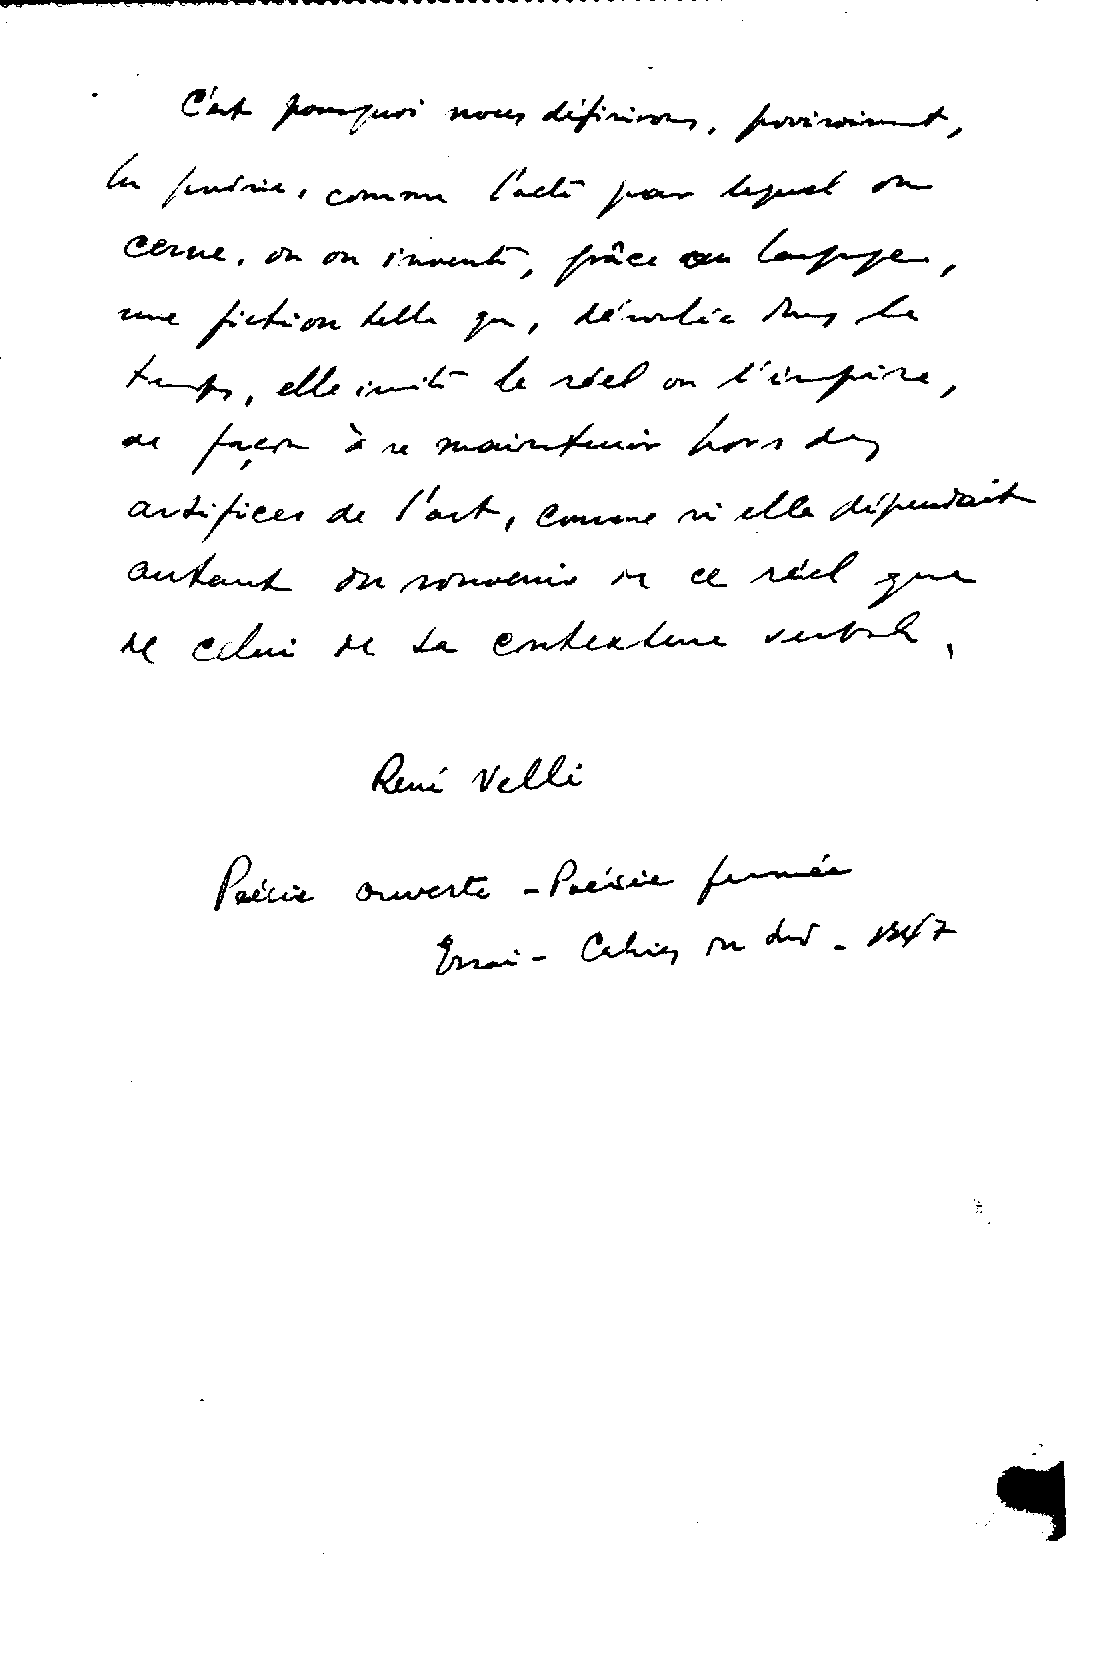 C'est pourquoi nous définirons, provisoirement,
la poésie, comme l'acte par lequel on
cerne, ou on invente, grâce au langage,
une fiction telle que, déroulée dans le
temps, elle imite le réel ou l'inspire,
de façon à se maintenir hors des
artifices de l'art, comme si elle dépendait
autant du souvenir de ce réel que
de celui de sa contexture verbale.
René Nelli
Poésie ouverte - Poésie fermée
Essai - Cahiers du Sud - 1947